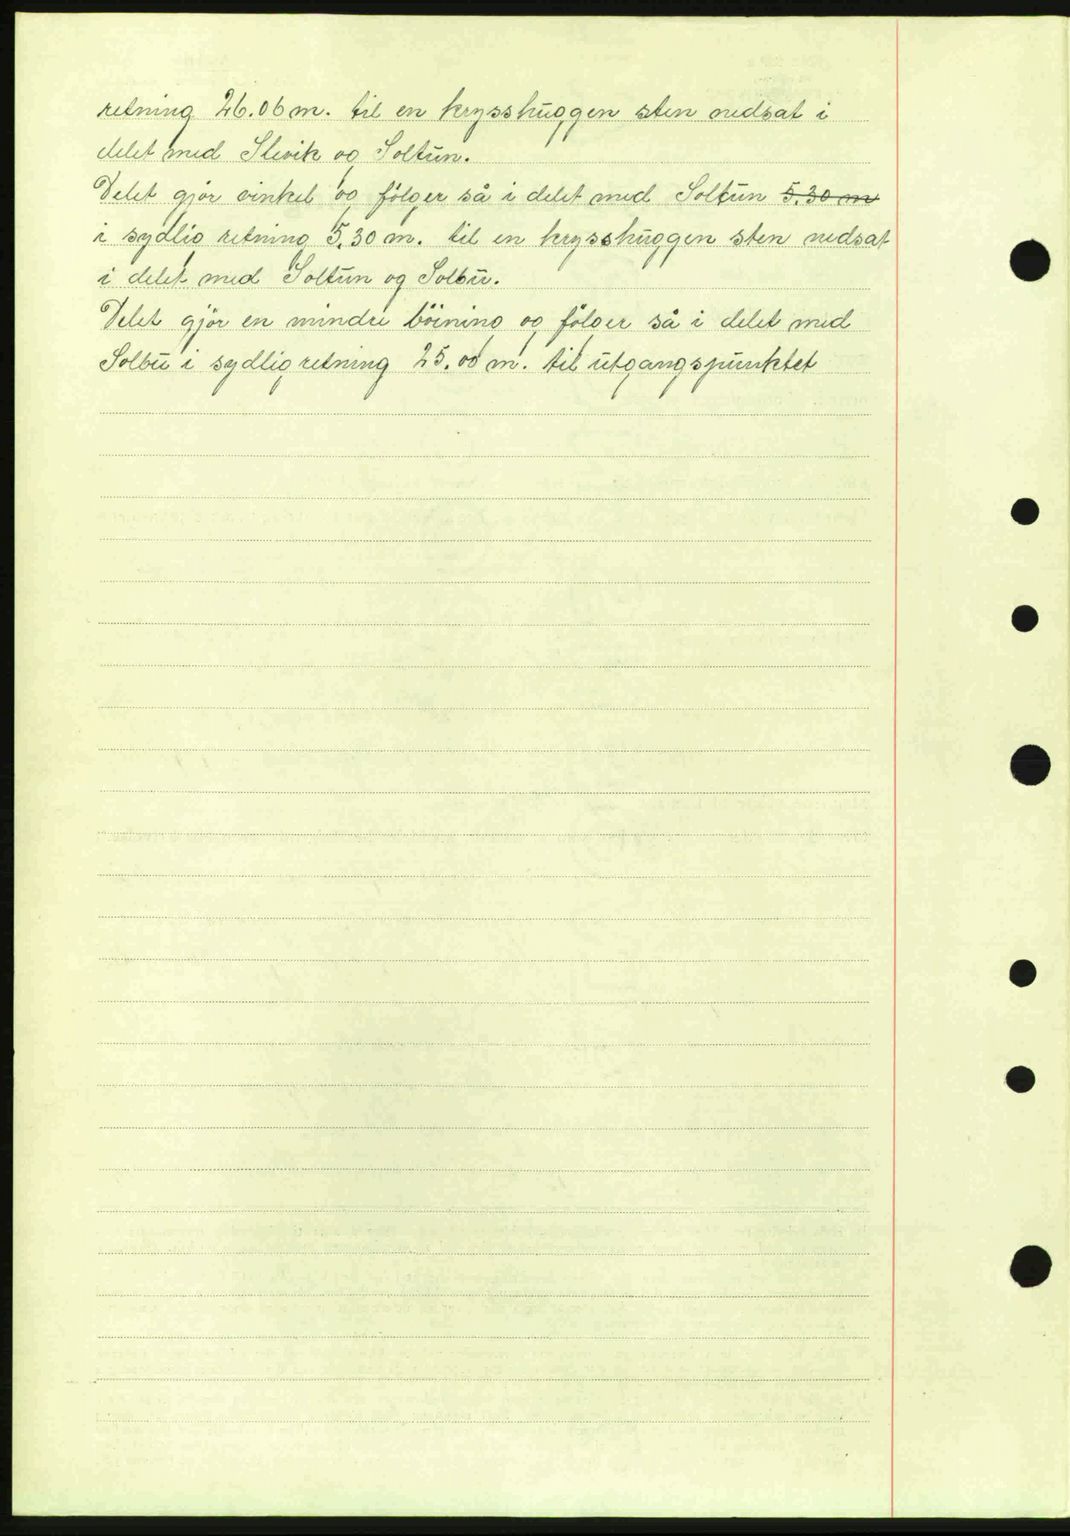 retning 26.06 m. til en krysshuggen sten nedsat i
delet med Slevik og Soltun.
Delet gjör vinkel og fölger så i delet med Soltun 5.30 m
i sydlig retning 5.30 m. til en krysshuggen sten nedsat
i delet med Soltun og Solbu.
Delet gjör en mindre böining og fölger så i delet med
Solbu i sydlig retning 25.00 m. til utgangspunktet